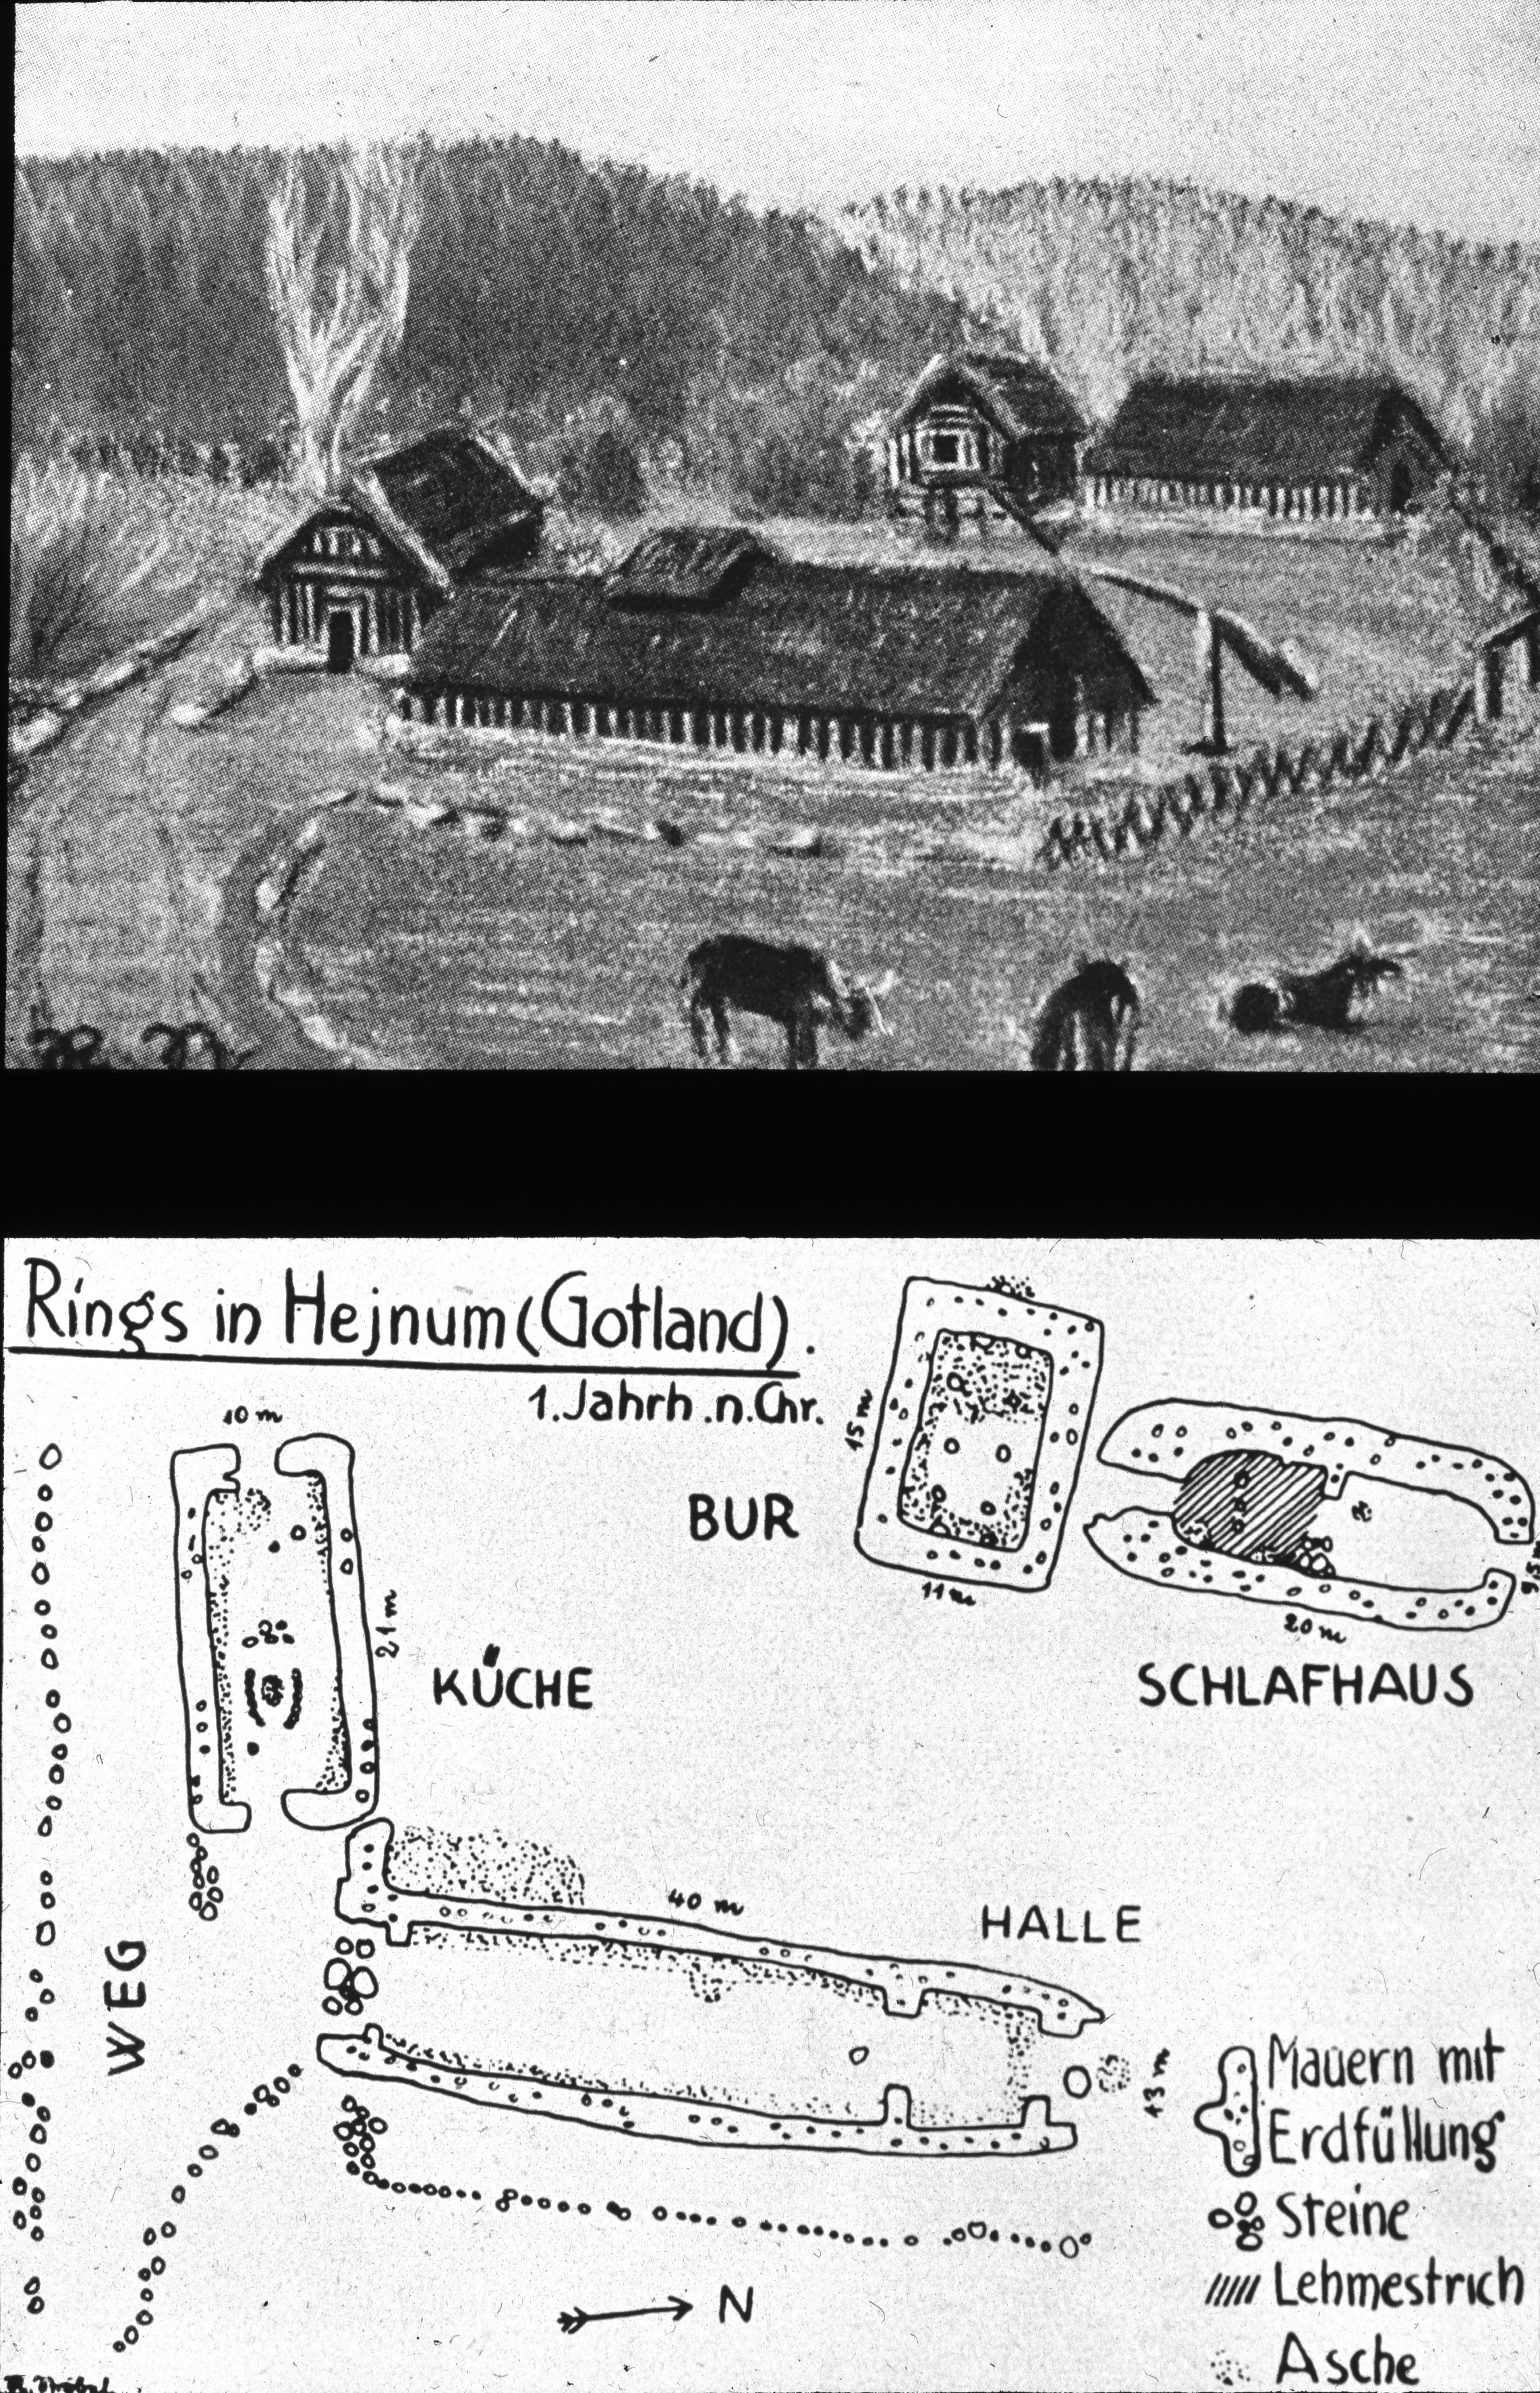 Rings in Hejnum (Gotland).
1. Jahrh. n. Chr.
10 m
15 m
BUR
11 m
9,5 m
20 m
SCHLAFHAUS
21 m
KÜCHE
40 m
HALLE
WEG
13 m
Mauern mit
Erdfüllung
Steine
Lehmestrich
N
Asche